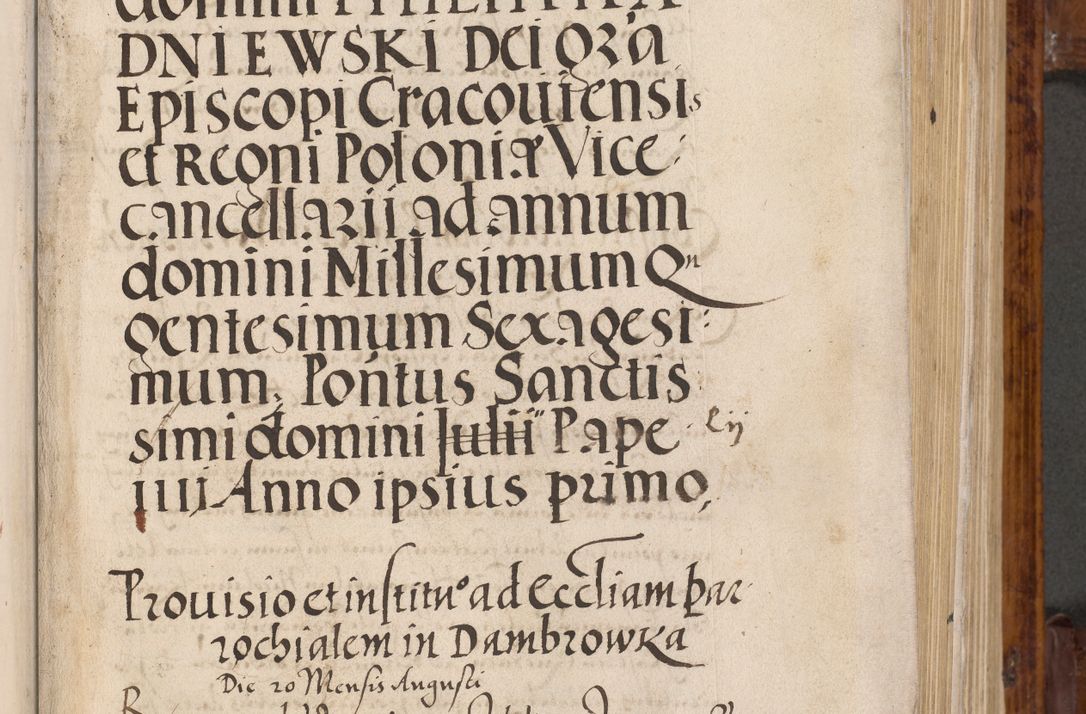 domini PHILIPPI PA
DNIEWSKI Dei gra
Episcopi Cracouiensis
et Regni Poloniæ Vice:
cancellarii ad annum
domini Millesimum Qn
gentesimum Sexagesi:
mum, Pontus Sanctis
simi domini Julii Pape Pij
IIII Anno ipsius primo,
Prouisio et institu° ad Eccliam par
rochialem in Dambrowka
Die 20 Mensis Augusti